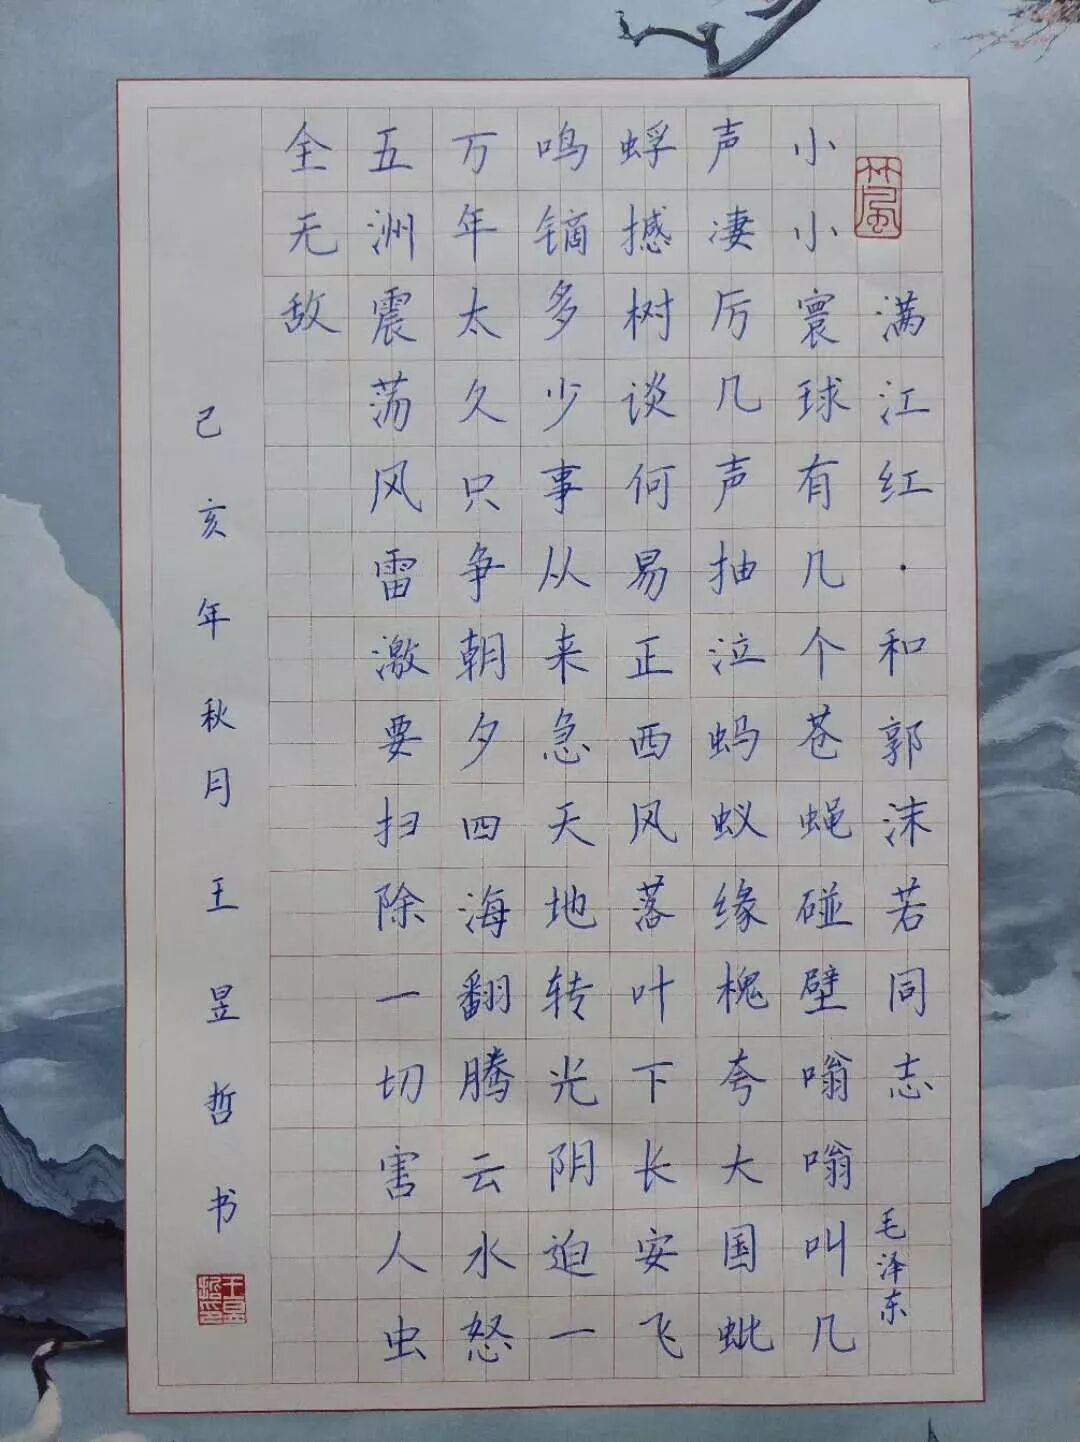 满江红·和郭沫若同志 毛泽东
小小寰球有几个苍蝇碰壁嗡嗡叫几
声凄厉几声抽泣蚂蚁缘槐夸大国蚍
蜉撼树谈何易正西风落叶下长安飞
鸣镝多少事从来急天地转光阴迫一
万年太久只争朝夕四海翻腾云水怒
五洲震荡风雷激要扫除一切害人虫
全无敌
己亥年秋月王昱哲书
王昱哲印